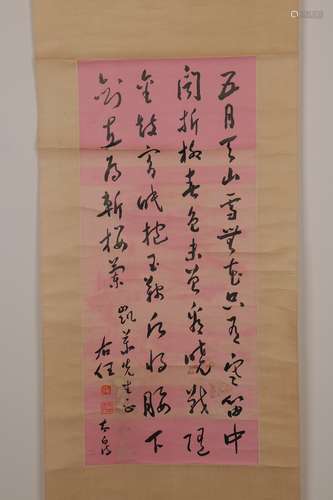 五月天山雪無花只有寒笛中
聞折柳春色未曾看曉戰隨
金鼓宵眠抱玉鞍願將腰下
劍直為斬樓蘭
凱先生正
右任
太白詩